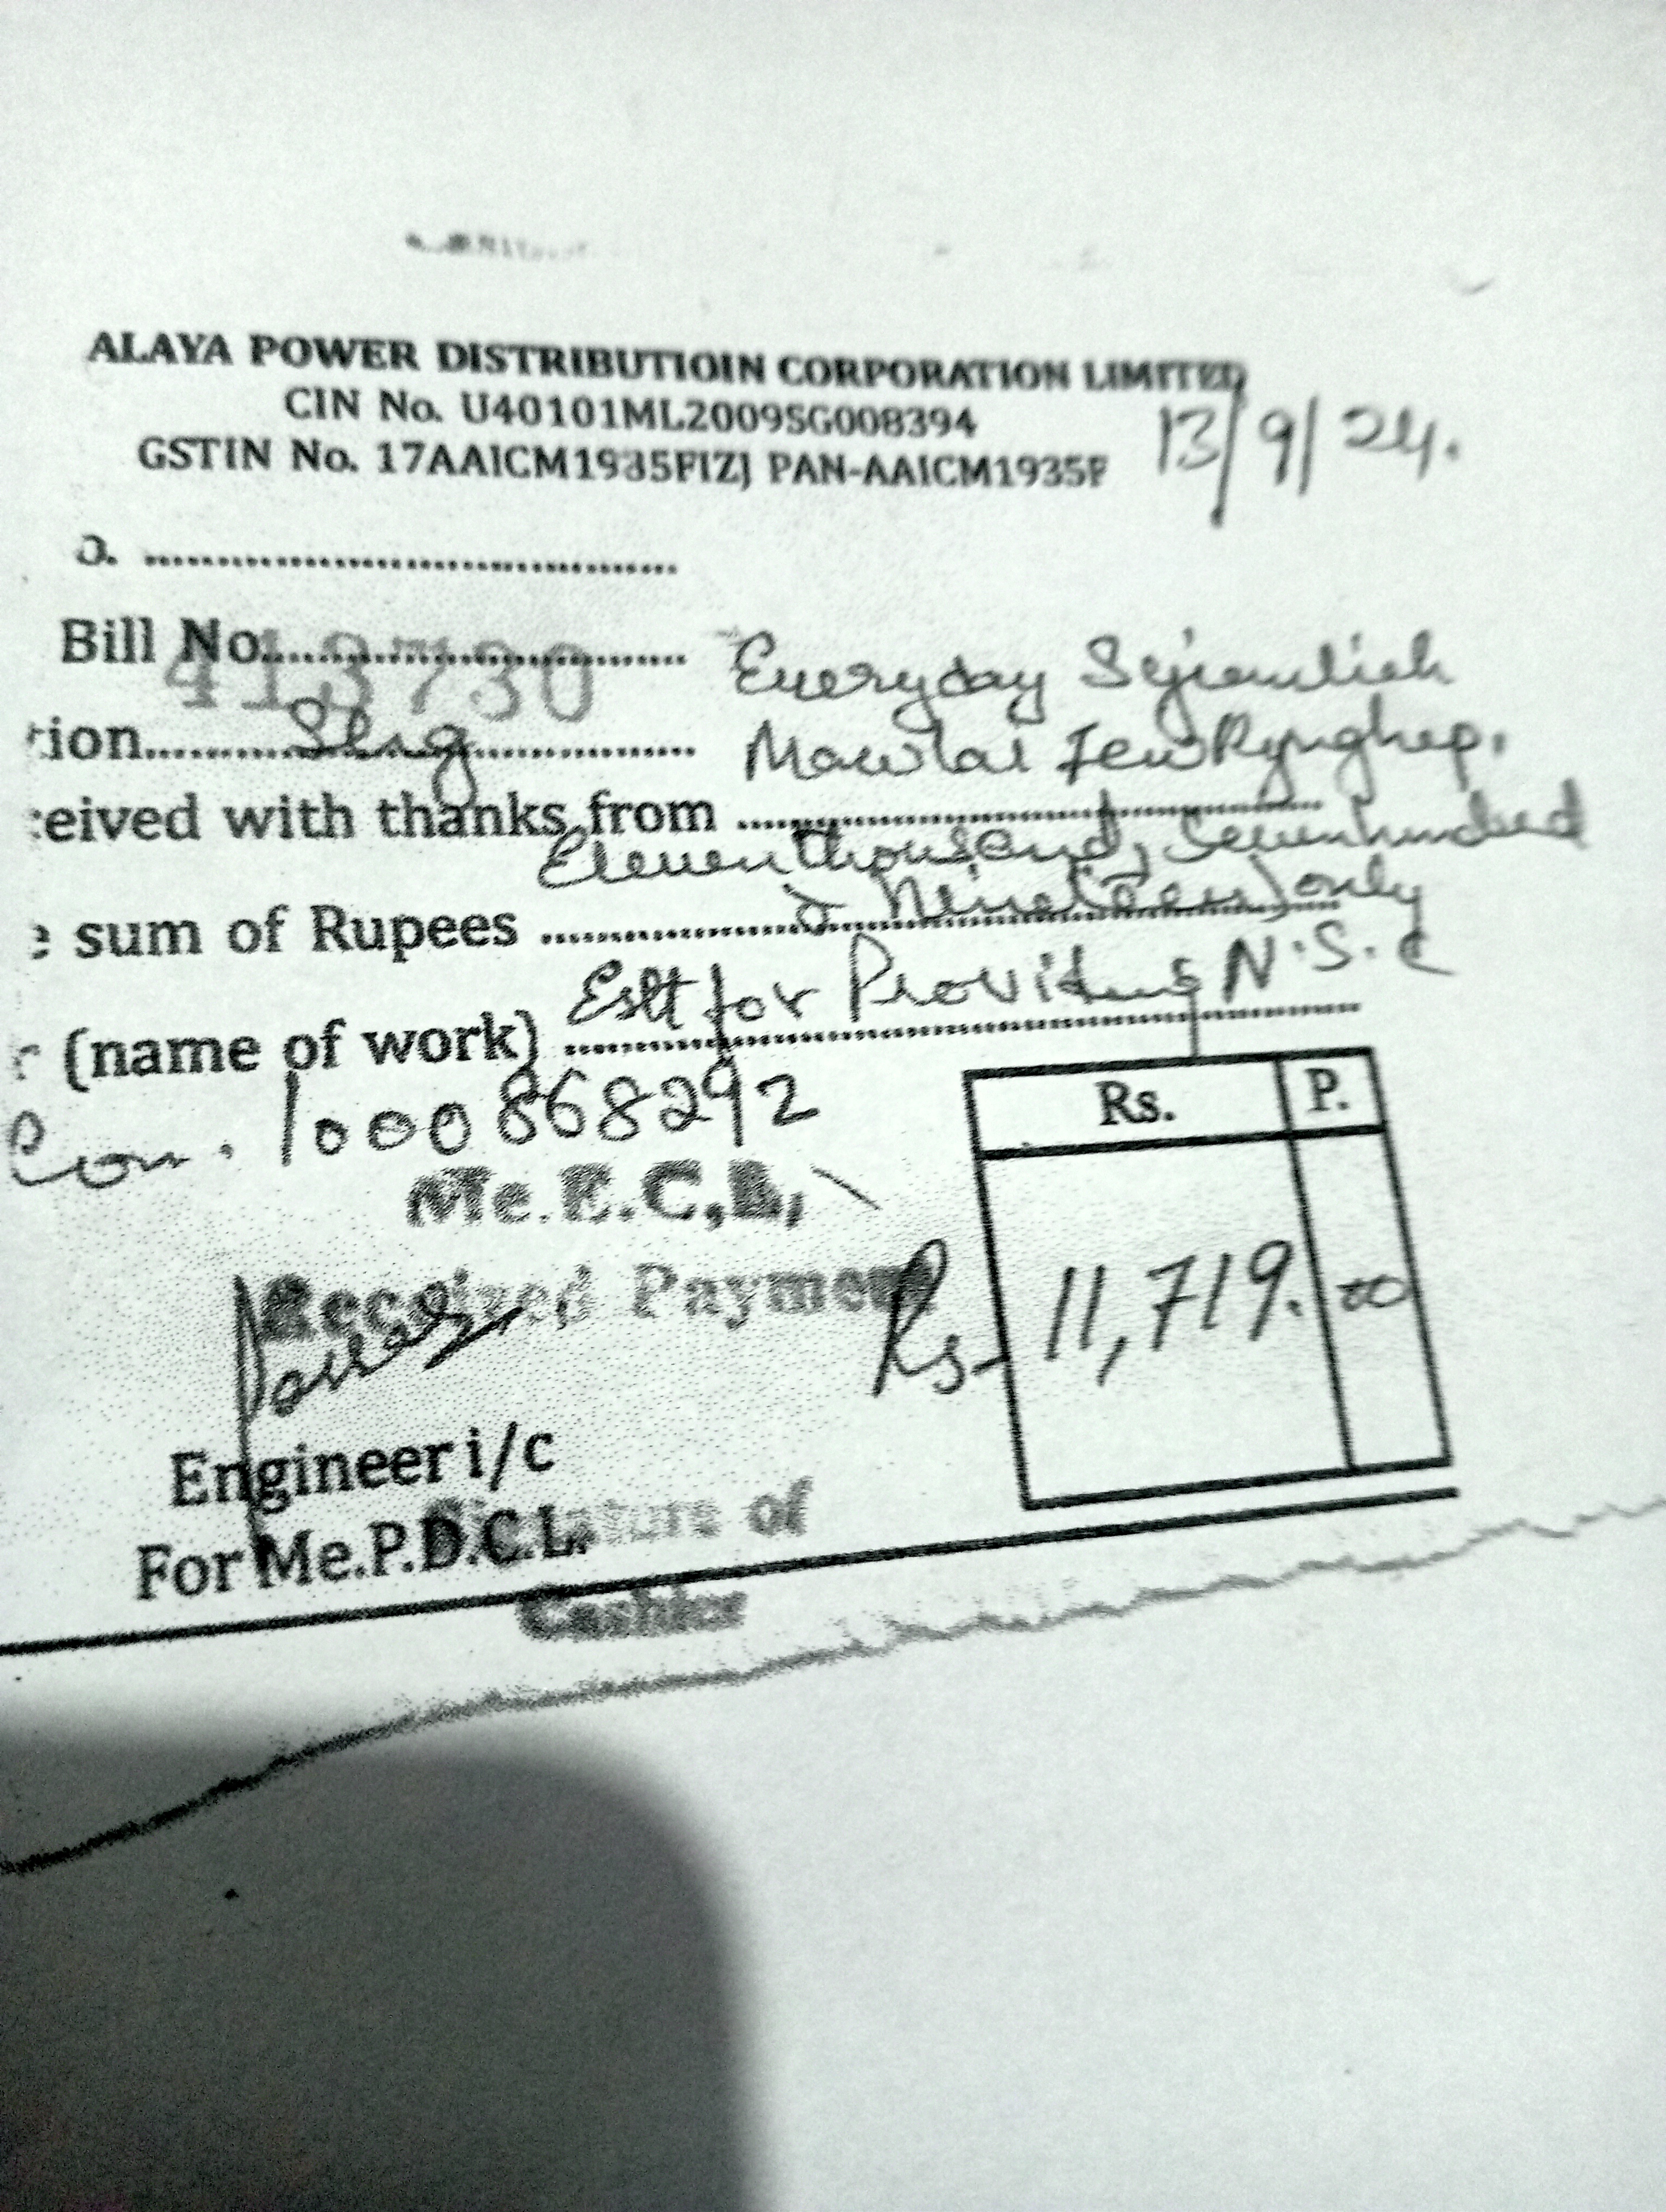 ALAYA POWER DISTRIBUTIOIN CORPORATION LIMITED
CIN No. U40101ML2009SG008394
GSTIN No. 17AAICM1935FIZJ PAN-AAICM1935F
13/9/24.
o. ..........
Bill No..........
413730
tion..........
Everyday
Mawlai
ceived with thanks from ..........
Eleven thousand, Seven hundred
& Nineteen) only
e sum of Rupees ..........
Estt for Providing N.S.C
r (name of work) ..........
Con. 1000868292
Me.E.C.L,
Rs. P.
Received Payment
Rs. 11,719. 00
Engineer i/c
Signature of
For Me.P.D.C.L.
Cashier